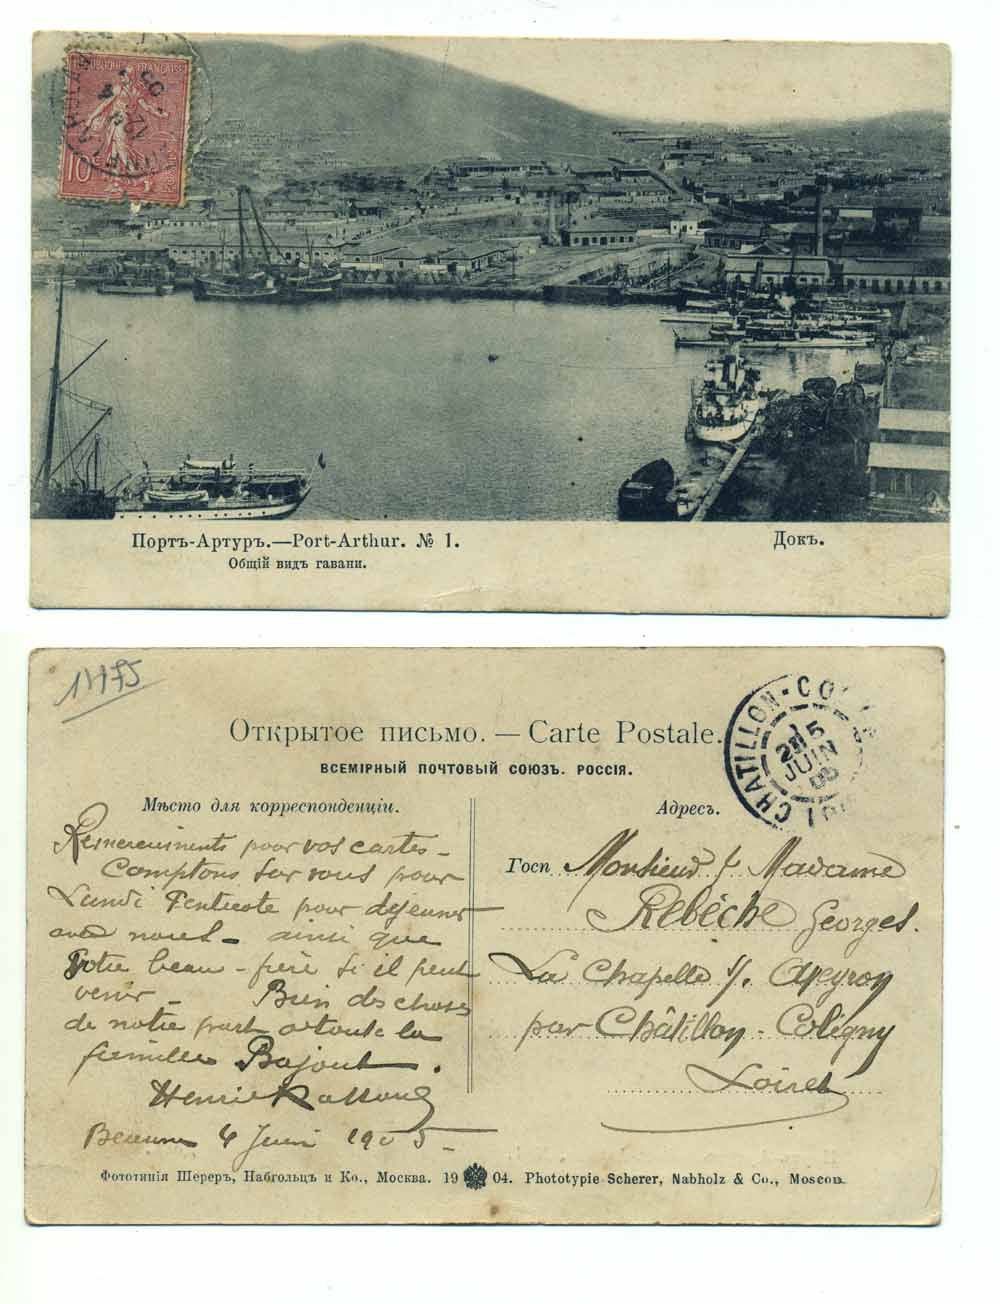 RÉPUBLIQUE FRANÇAISE
10c
Портъ-Артуръ.—Port-Arthur. № 1.
Докъ.
Общій видъ гавани.
11175
Открытое письмо. — Carte Postale.
ВСЕМІРНЫЙ ПОЧТОВЫЙ СОЮЗЪ. РОССІЯ.
CHATILLON-CO
5
JUIN
05
Мѣсто для корреспонденціи.
Адресъ.
Remerciements pour vos cartes –
Comptons sur vous pour
Lundi Pentecote pour déjeuner
avec nous – ainsi que
Votre beau-frère si il peut
venir – Bien des choses
de notre part a toute la
famille Bajout.
Henri
4 Juin 1905 –
Госп Monsieur & Madame
Rebèche Georges.
La Chapelle s/. Aveyron
par Châtillon-Coligny
Loiret
Фототипія Шереръ, Набгольцъ и Ко., Москва. 1904. Phototypie Scherer, Nabholz & Co., Moscou.